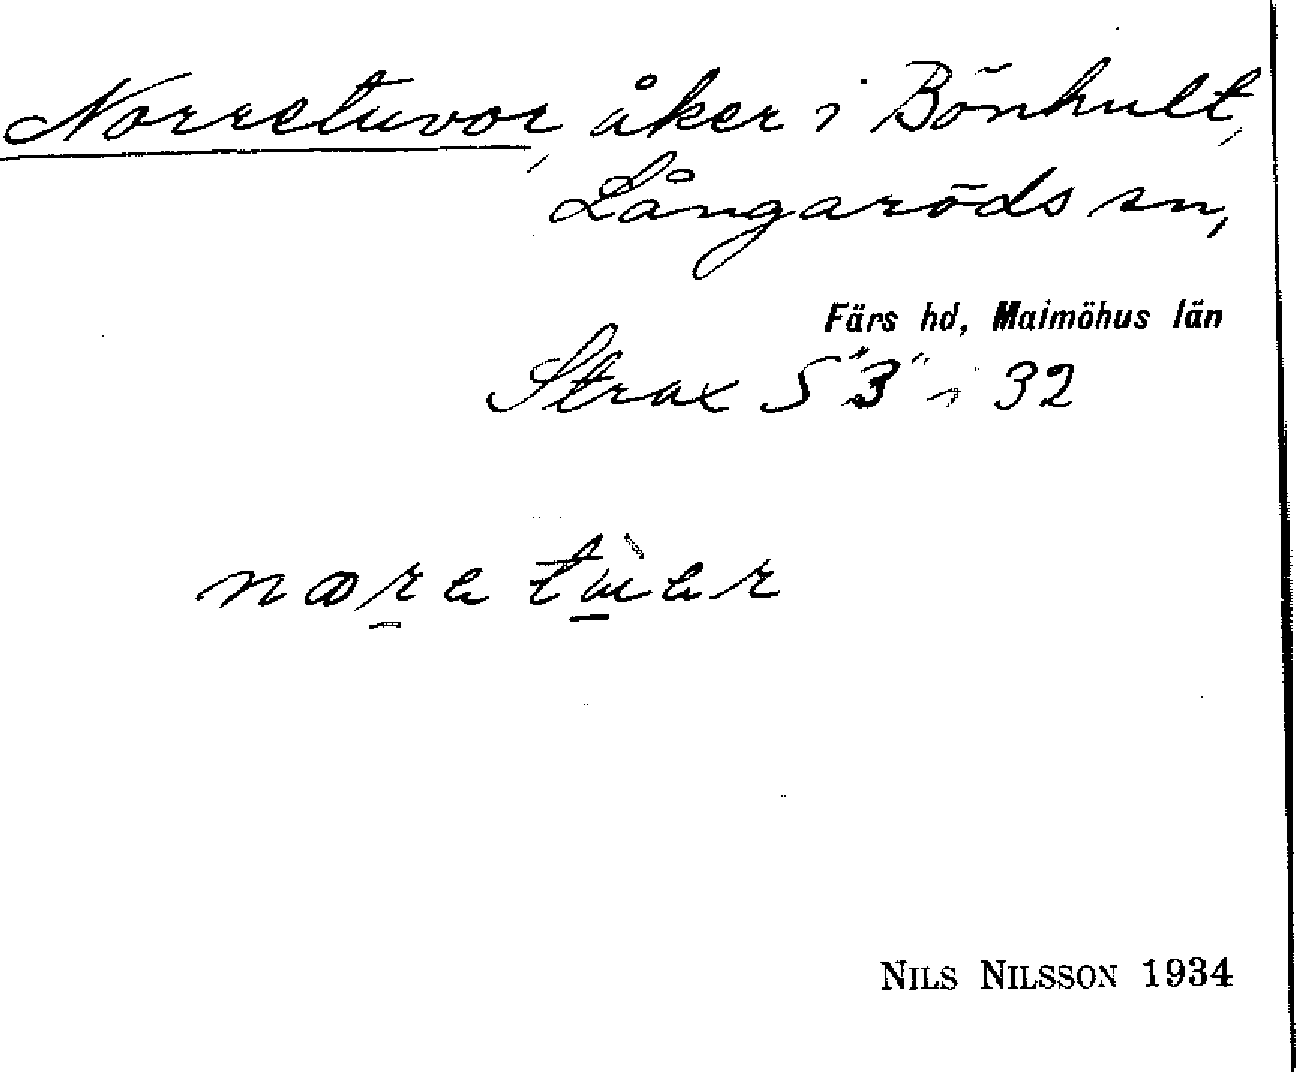 Norretuvor, åker i Bönhult,
Långaröds sn,
Färs hd, Malmöhus län
Strax S "3" i 32
nær̲a tù̲ar
NILS NILSSON 1934